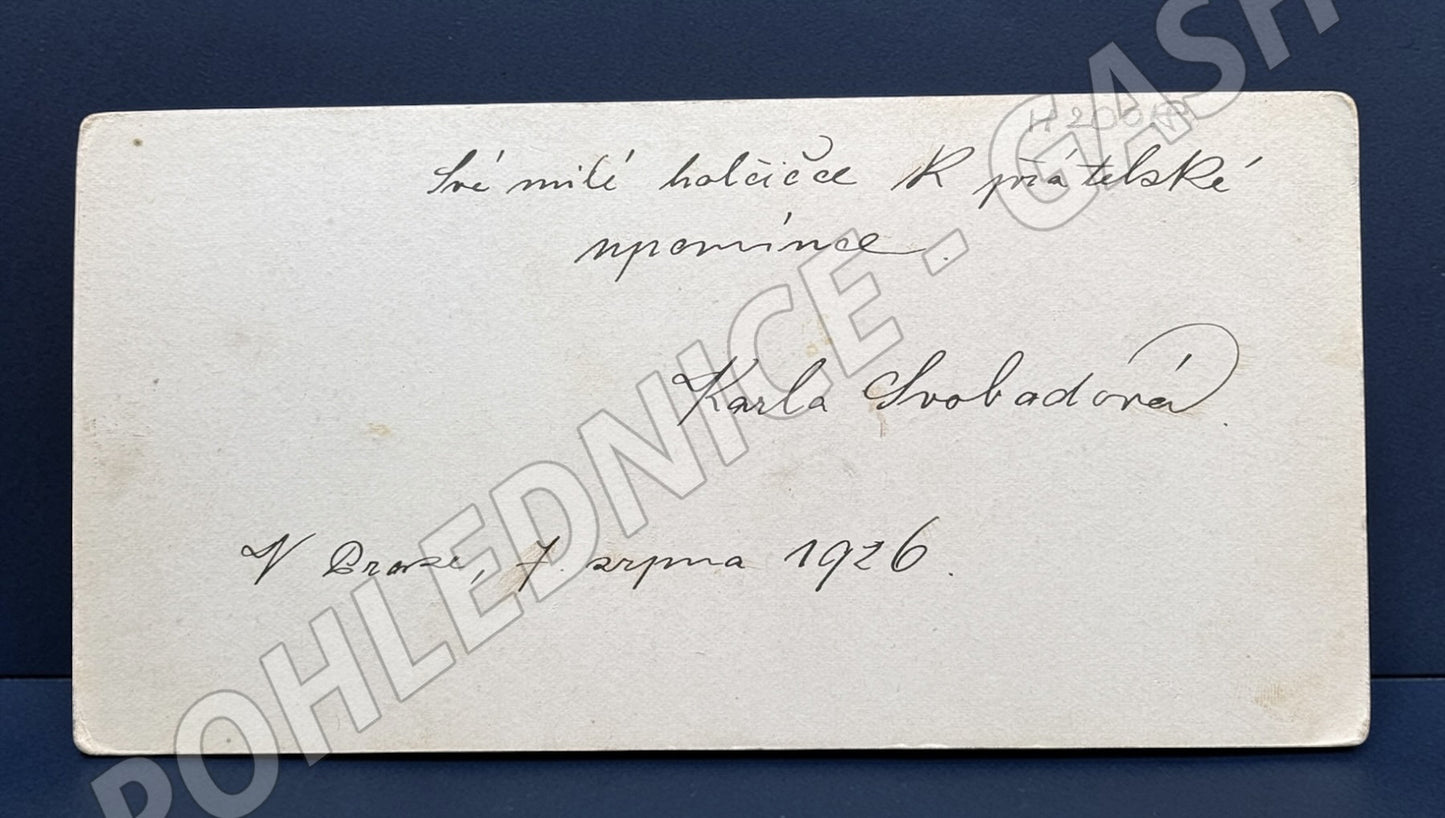 H200(A)
Své milé holčičce k přátelské
upomínce.
Karla Svobodová.
V Praze, 7. srpna 1926.
POHLEDNICE - GASH